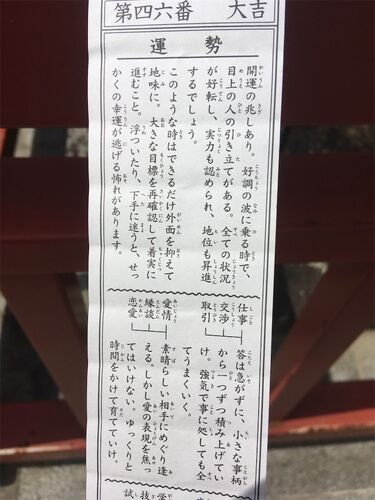 第四六番　大吉
運勢
開運の兆しあり。好調の波に乗る時で、
目上の人の引き立てがある。全ての状況
が好転し、実力も認められ、地位も昇進
するでしょう。
このような時はできるだけ外面を抑えて
地味に。大きな目標を再確認して着実に
進むこと。浮ついたり、下手に迷うと、せっ
かくの幸運が逃げる怖れがあります。
仕事
交渉
取引
答は急がずに、小さな事柄
から一つずつ積み上げてい
け。強気で事に処しても全
てうまくいく。
愛情
縁談
恋愛
素晴らしい相手にめぐり逢
える。しかし愛の表現を焦っ
てはいけない。ゆっくりと
時間をかけて育てていけ。